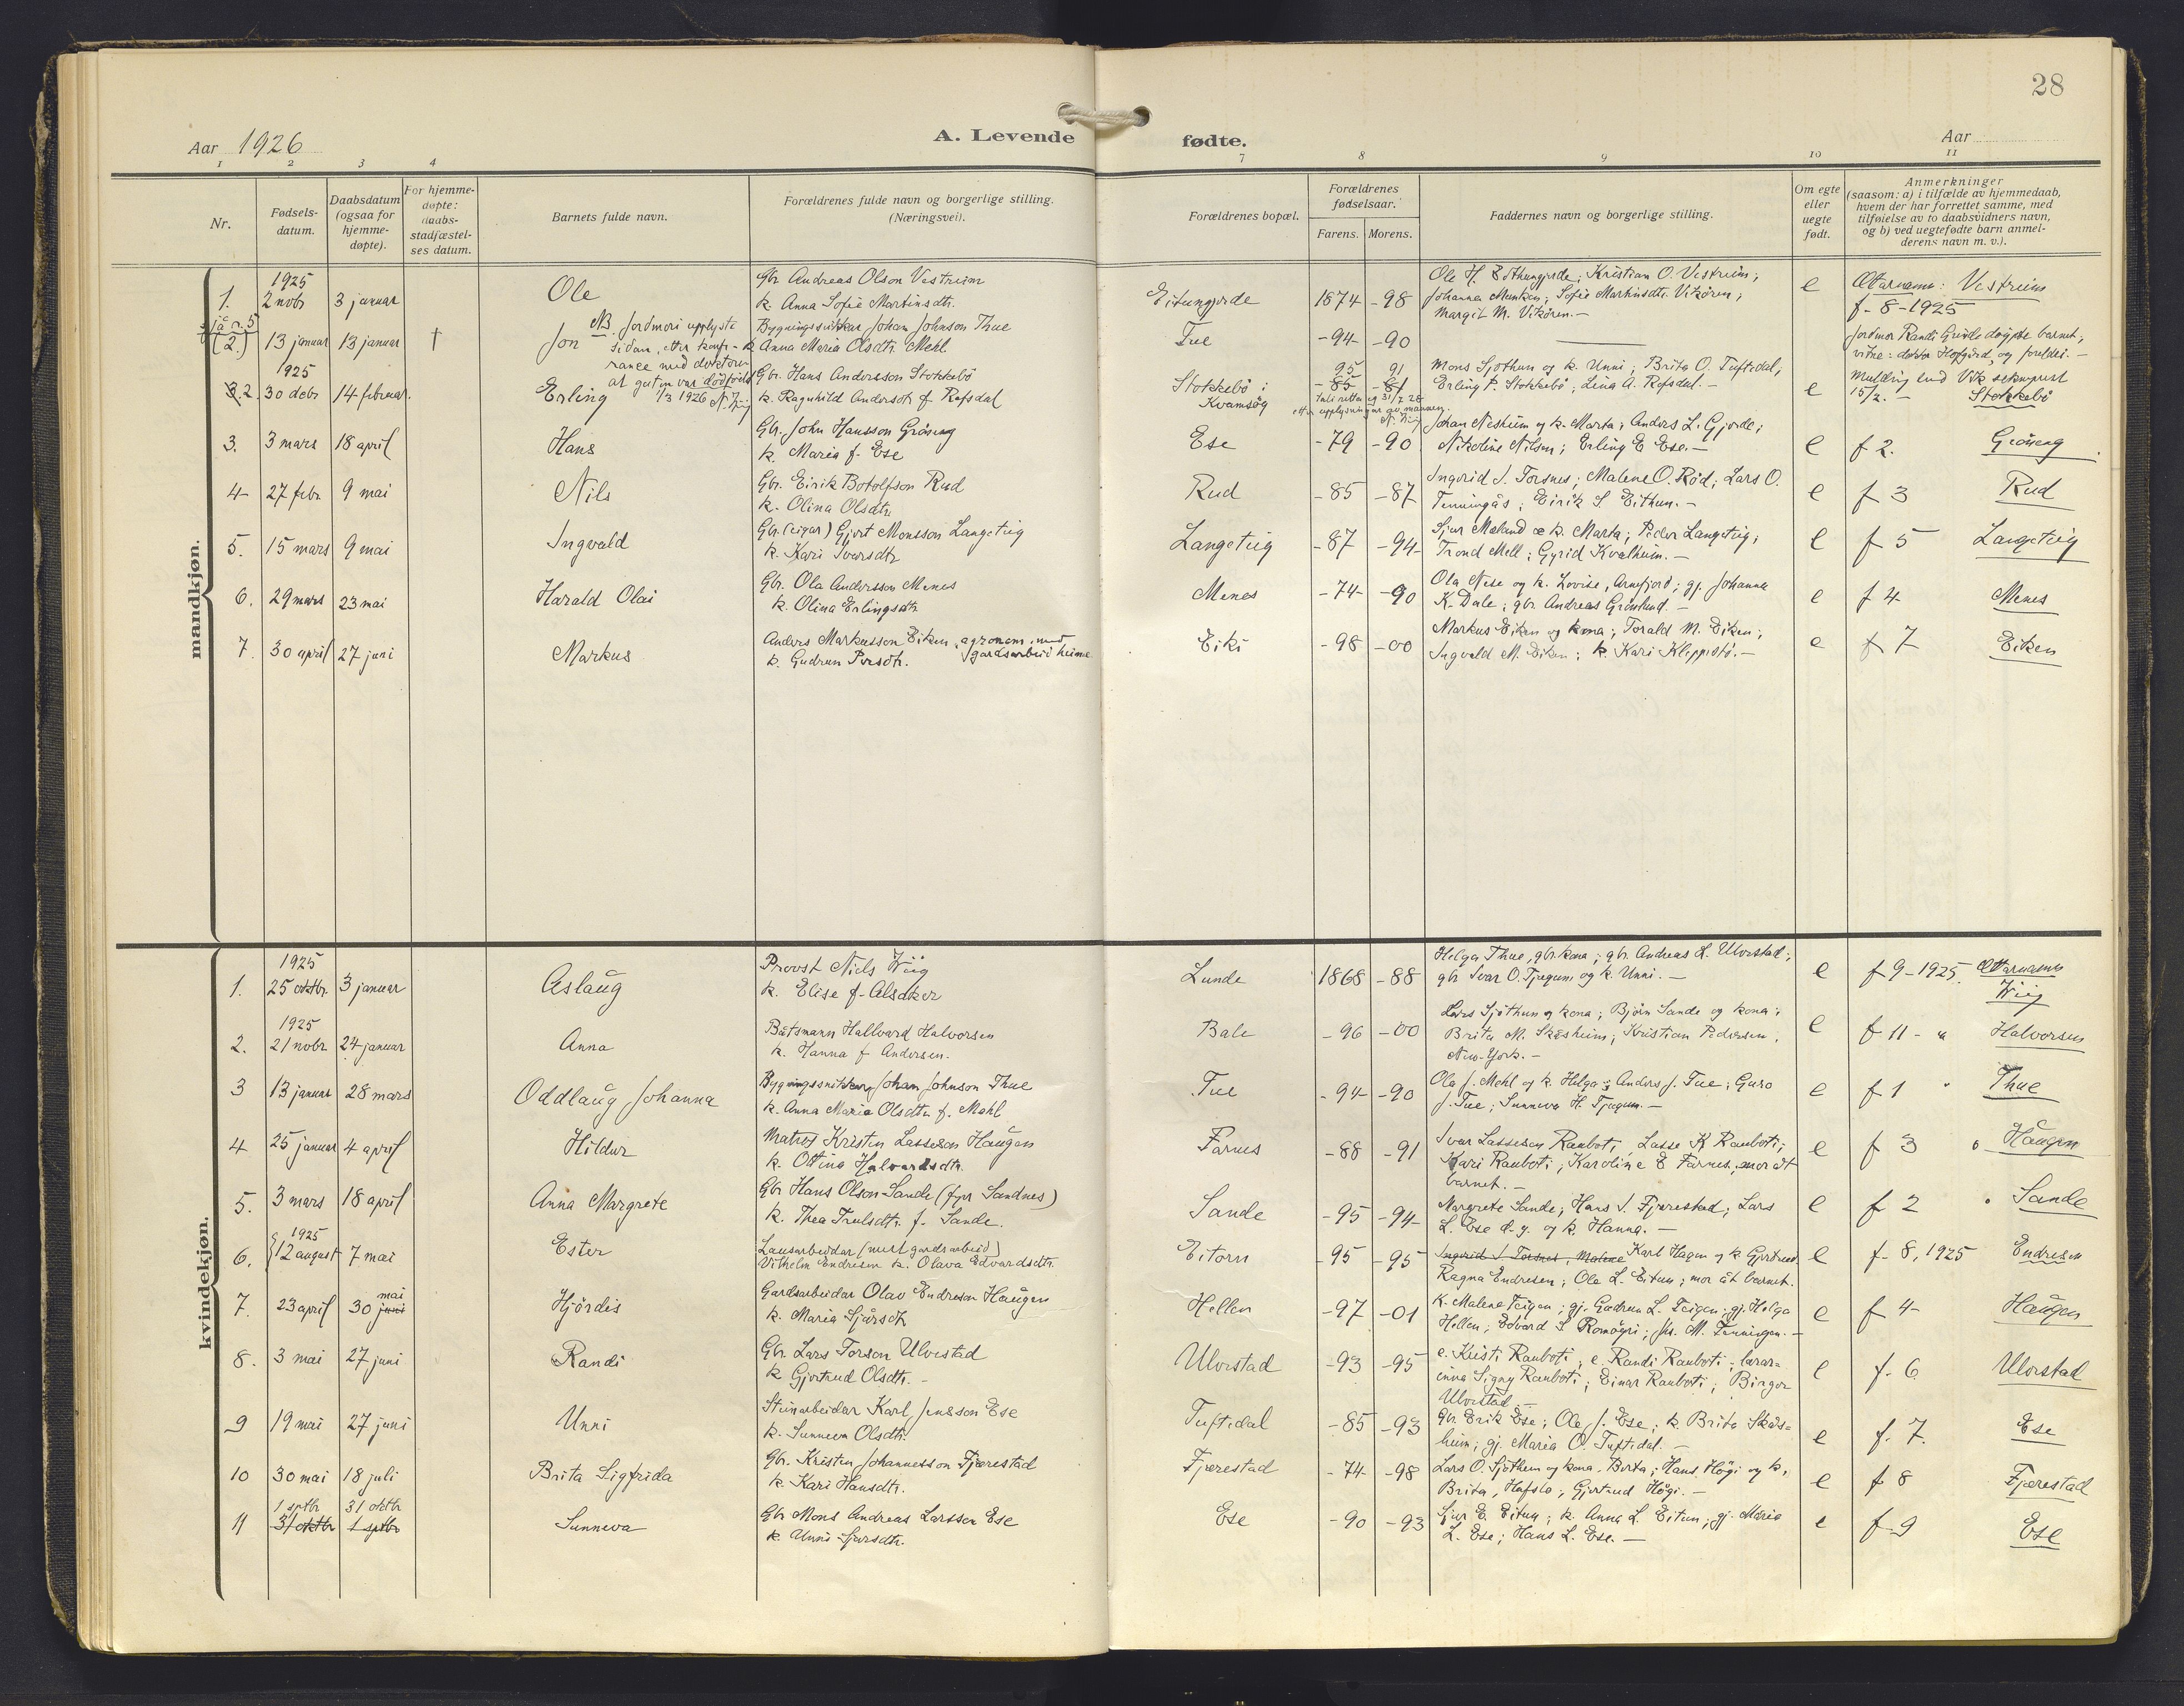 28
Aar 1926
A. Levende
fødte.
Aar
1 2 3 4
7 8 9 10 11
Nr.
Fødsels-
datum.
Daabsdatum
(ogsaa for
hjemme-
døpte).
For hjemme-
døpte:
daabs-
stadfæstel-
ses datum.
Barnets fulde navn.
Forældrenes fulde navn og borgerlige stilling.
(Næringsvei).
Forældrenes bopæl.
Forældrenes
fødselsaar.
Farens. Morens.
Faddernes navn og borgerlige stilling.
Om egte
eller
uegte
født.
Anmerkninger
(saasom: a) i tilfælde av hjemmedaab,
hvem der har forrettet samme, med
tilføielse av to daabsvidners navn,
og b) ved uegtefødte barn anmel-
derens navn m. v.).
mandkjøn.
1925
1. 2 nobr 3 januar Ole
Gbr. Andreas Olson Vestreim
k. Anna Sofie Martinsdtr.
Eitungjerde 1874 -98
Ole H. Eithungjerde; Kristian O. Vestreim;
Johanna Munken; Sofie Martinsdtr. Vikøren;
Margit M. Vikøren.-
e Ættarnamn: Vestreim
f. 8-1925
sjå n. 5
(2.) 13 januar 13 januar † Jon
NB. Jordmori upplyste
sidan, etter konfe-
ranse med doktoren
at guten var dødfødd
1/3 1926 N. Wiig
Bygningssnikkar Johan Johnson Thue
k. Anna Maria Olsdtr. Mehl
Tue -94 -90
Jordmor Randi Grinde døypte barnet;
vitne: doktor Hofgård og foreldri.-
1925
3. 2. 30 debr 14 februar. Erling
Gbr. Hans Andersson Stokkebö
k. Ragnhild Andersdtr. f. Refsdal
Stokkebö i
Kvamsøy
95 91
-85 -81
etter upplysningar av mannen.
N. Wiig
Mons Sjøthun og k. Unni; Brita O. Tuftedal;
Erling P. Stokkebö; Lina A. Refsdal.-
e 15/2.- Stokkebö
3. 3 mars 18 april Hans
Gbr. John Hansson Gröneng
k. Maria f. Ese
Ese -79 -90
Johan Nesheim og k. Marta; Anders L. Gjerde;
Nikoline Nilsen; Erling E Ese.-
e f 2. Gröneng
4- 27 febr. 9 mai Nils
Gbr. Eirik Botolfson Rud
k. Olina Olsdtr.
Rud -85 -87
Ingerid I. Torsnes; Malene O. Röd; Lars O.
Tenningås; Eirik S. Eithun.-
e f 3 Rud
5. 15 mars 9 mai Ingvald
Gbr. (eigar) Gjert Monsson Langeteig
k. Kari Ivarsdtr
Langeteig -87 -94-
Sjur Mæland æ k. Marta; Peder Langeteig;
Trond Mell; Gyrid Kvalheim.-
e f 5 Langeteig
6. 29 mars 23 mai Harald Olai
Gbr. Ola Andersson Menes
k. Olina Erlingsdtr
Menes -74- -90
Ola Nese og k. Lovise, Arnefjord; gj. Johanna
K. Dale; gbr Andreas Grönlund.-
e f 4 Menes
7. 30 april 27 juni Markus
Anders Markusson Eiken, agronom, med
gardsarbeid heime
k. Gudrun Persdtr.
Eiki -98 -00
Markus Eiken og kona; Torald M. Eiken;
Ingvald M. Eiken; k. Kari Klippistö.-
e f 7 Eiken
kvindekjøn.
1925
1. 25 oktbr. 3 januar Aslaug
Provst Niels Wiig
k. Elise f. Alsaker
Lunde 1868 -88
Helga Thue, gbr.kona; gbr. Andreas L. Ulvestad;
gbr Ivar O. Tjugum og k. Unni.-
e f 9-1925. Ættarnamn
Wiig
1925
2. 21 nobr 24 januar Anna
Båtsmann Hallvard Halvorsen
k. Hanna f Andersen.
Bale -96 -00
Lars Sjöthun og kona; Björn Sande og kona;
Brita M. Skåsheim; Kristian Pedersen,
New-York.-
e f 11- " Halvorsen
3 13 januar 28 mars Oddlaug Johanna
Bygningssnikkar Johan Johnson Thue
k. Anna Maria Olsdtr. f. Mehl
Tue -94- -90
Ola J. Mehl og k. Helga; Anders J. Tue; Guro
J. Tue; Sunneva H. Tjugum.-
e f 1 " Thue
4 25 januar 4 april Hildur
Matros Kristen Lasseson Haugen
k. Ottina Halvardsdtr.
Farnes -88 -91
Ivar Lasseson Rauboti, Lasse K Rauboti;
Kari Rauboti; Karoline E Farnes, mor åt
barnet.-
e f 3 Haugen
5. 3 mars 18 april Anna Margrete
Gbr Hans Olson Sande (fyr Sandnes)
k. Thea Trulsdtr. f. Sande.
Sande -95 -94-
Margrete Sande; Hans I. Fjærestad; Lars
L. Ese d.y. og k. Hanna.-
e f 2 Sande
1925
6. 12 august 7 mai Ester
Lausarbeidar (mest gardsarbeid)
Vilhelm Endresen k. Olava Edvardsdtr.
Eitorn -95 -95
Ingerid I Torsnes, Malene Karl Hagen og k. Gjertrud
Ragna Endresen; Ola L. Eitun; mor åt barnet.
e f. 8, 1925 Endresen
7. 23 april 30 juni mai Hjördis
Gardsarbeidar Olav Endreson Haugen
k. Maria Sjursdtr
Hellen -97 -01
K. Malene Teigen; gj. Gudrun L. Teigen; gj. Helga
Hellen; Edvard S Romöyri; Joh. M. Tenningen.-
e f 4- Haugen
8. 3 mai 27 juni Randi
Gbr. Lars Torson Ulvestad
k Gjertrud Olsdtr.-
Ulvestad -93 -95
e. Kristi Rauboti; e. Randi Rauboti; lærar=
inna Signy Rauboti; Einar Rauboti; Birger
Ulvestad.-
e f. 6 Ulvestad
9 19 mai 27 juni Unni
Steinarbeidar Karl Jensson Ese
k. Sunneva Olsdtr.
Tuftedal -85 -93
Gbr. Erik Ese; Ole J. Ese; k Brita Skås=
heim; gj. Maria O. Tuftedal.-
e f. 7. Ese
10 30 mai 18 juli Brita Sigfrida
Gbr. Kristen Johannesson Fjærestad
k. Kari Hansdtr.
Fjærestad -74- -98
Lars O. Sjøthun og kona, Berta; Hans Högi og k.
Brita, Hafslo; Gjertrud Högi.-
e f 8 Fjærestad
1 sptbr 31 oktbr
11 31 oktbr 1 sptbr Sunneva
Gbr Mons Andreas Larsson Ese
k. Unni Sjursdtr.
Ese -90 -93
Sjur E. Eitun; k. Anna L. Eitun; gj. Maria
L. Ese; Hans L. Ese.-
e f 9 Ese